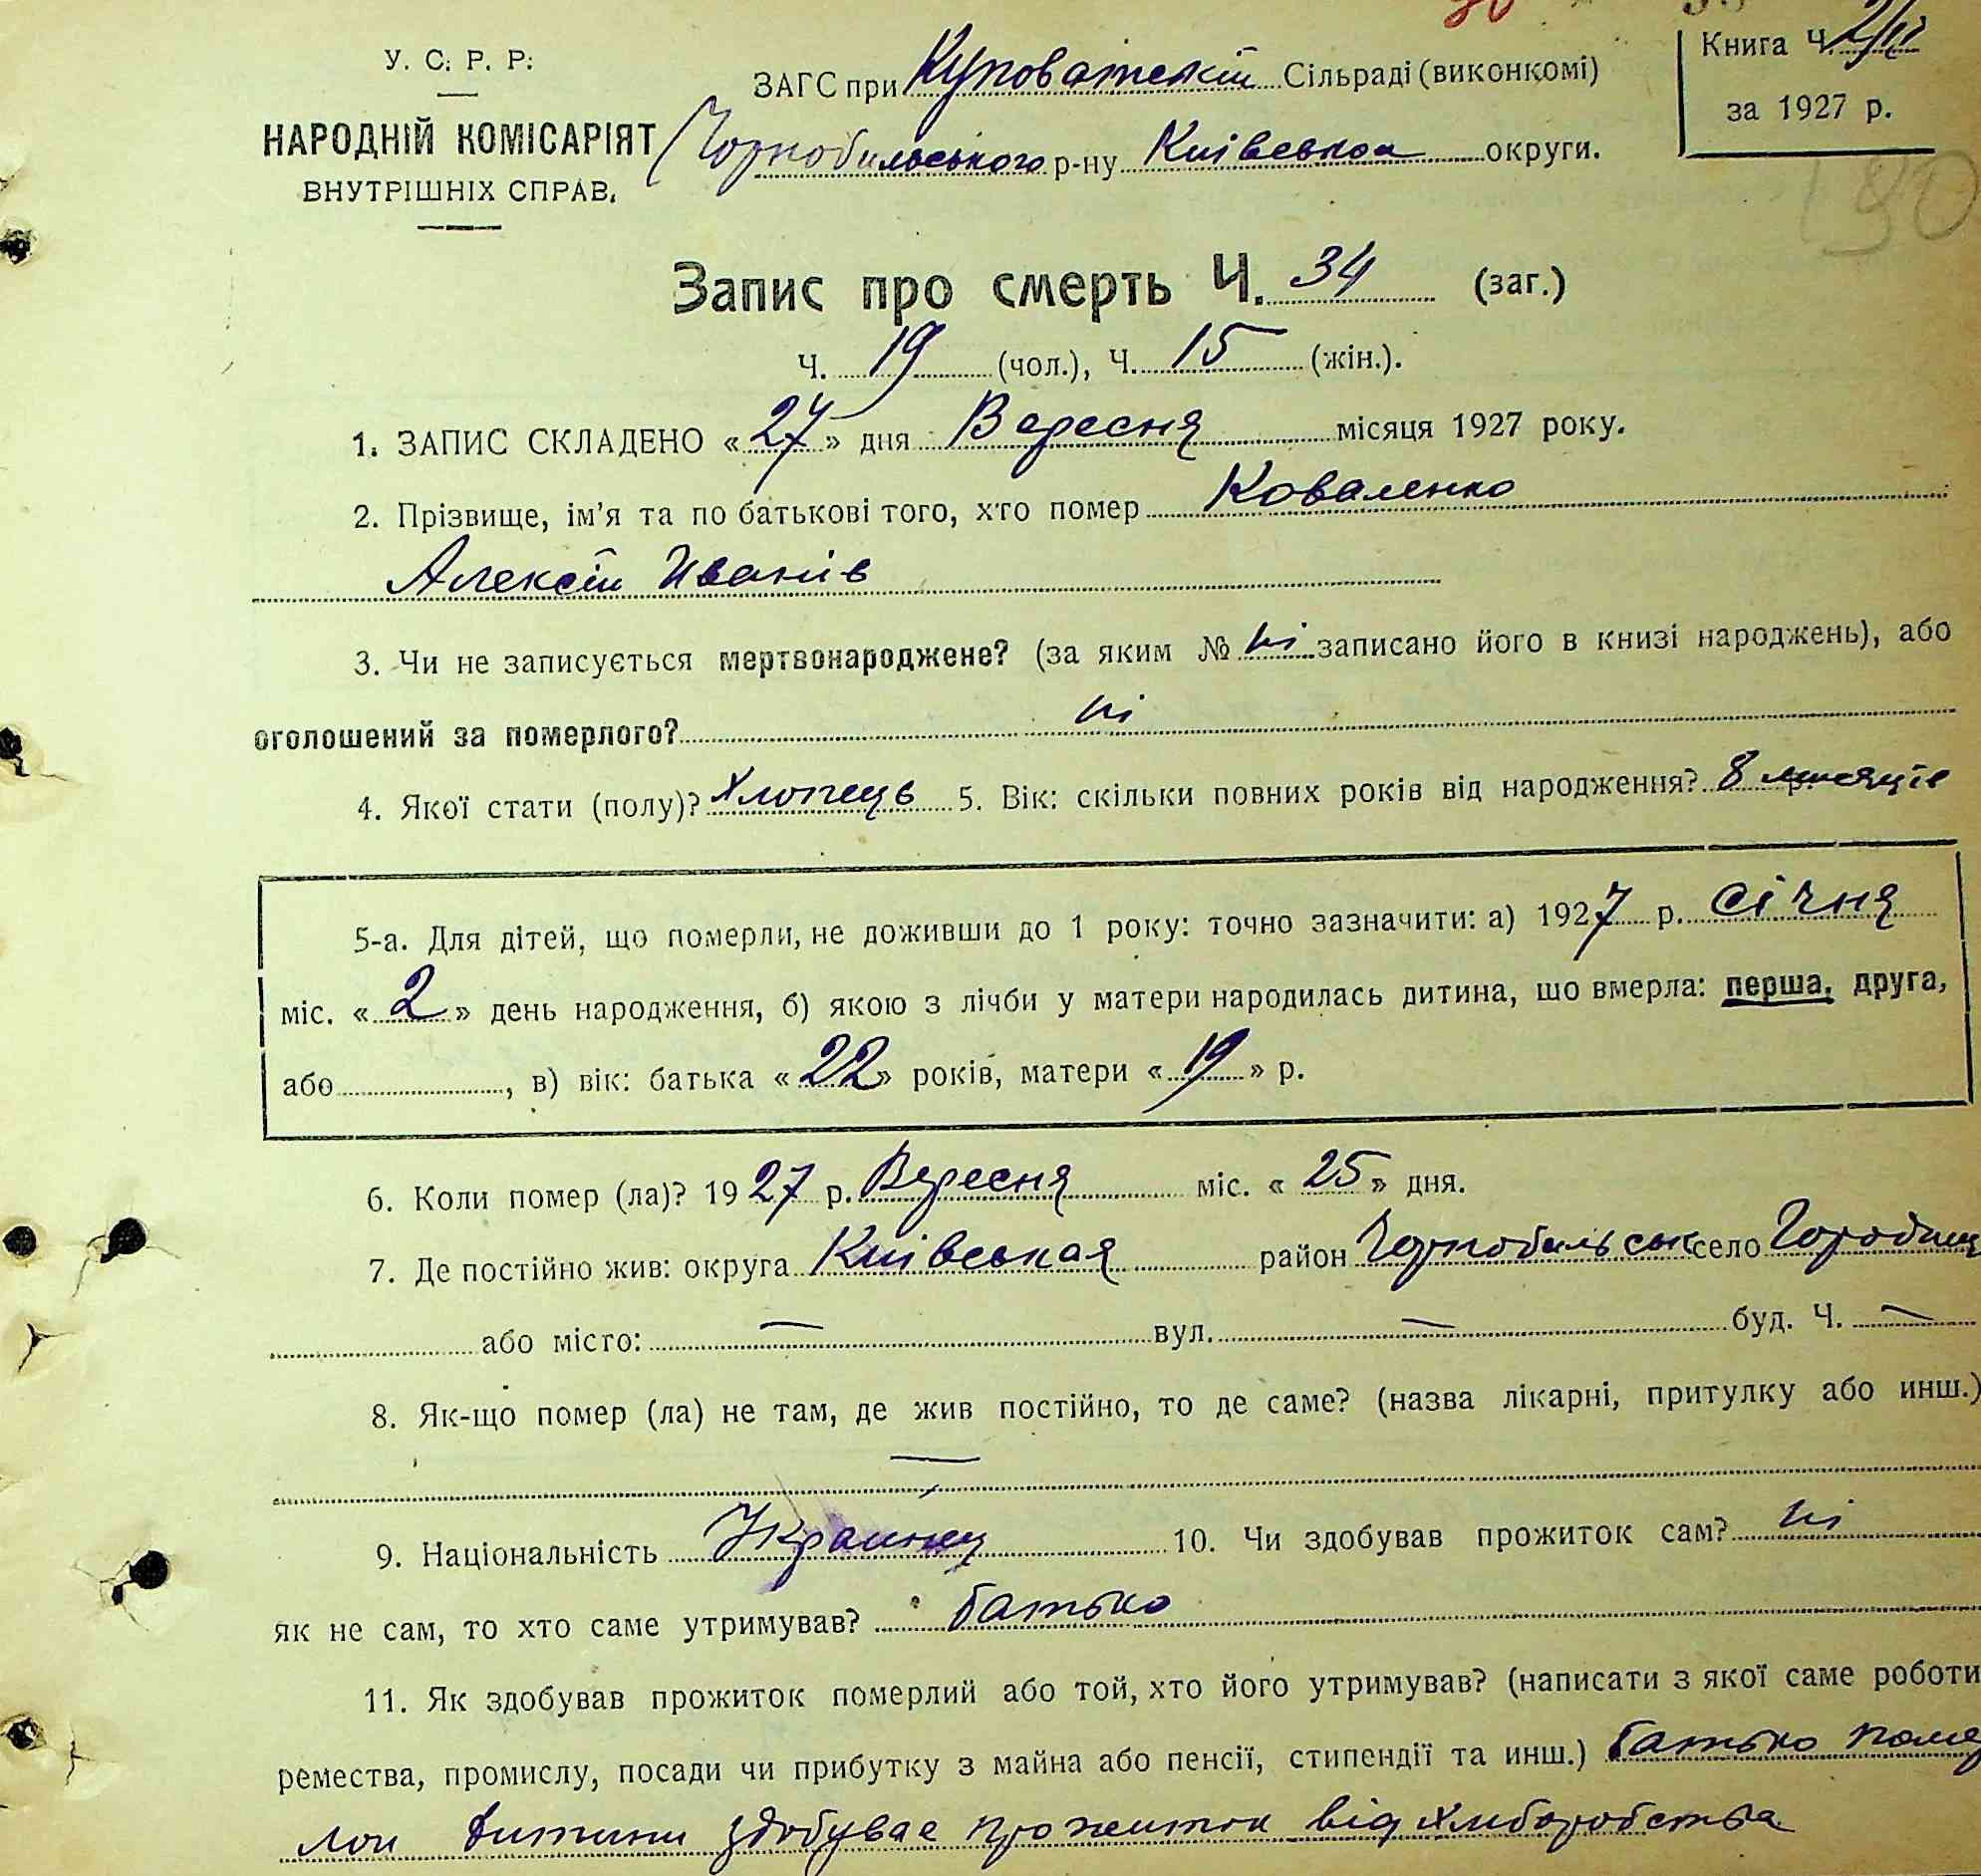 У. С. Р. Р.
НАРОДНІЙ КОМІСАРІЯТ
ВНУТРІШНІХ СПРАВ.
ЗАГС при Куповатській Сільраді (виконкомі)
Чорнобильського р-ну Київськоі округи.
Книга Ч.
за 1927 р.
Запис про смерть Ч. 34 (заг.)
Ч. 19 (чол.), Ч. 15 (жін.).
1. ЗАПИС СКЛАДЕНО « 27 » дня Вересня місяця 1927 року.
2. Прізвище, ім’я та по батькові того, хто помер Коваленко
Алексій Иванів
3. Чи не записується мертвонароджене? (за яким № ні записано його в книзі народжень), або
оголошений за померлого? ні
4. Якої стати (полу)? Хлопець 5. Вік: скільки повних років від народження? 8 місяців
5-а. Для дітей, що померли, не доживши до 1 року: точно зазначити: а) 1927 р. січня
міс. « 2 » день народження, б) якою з лічби у матери народилась дитина, що вмерла: перша, друга,
або , в) вік: батька « 22 » років, матери « 19 » р.
6. Коли помер (ла)? 1927 р. Вересня міс. « 25 » дня.
7. Де постійно жив: округа Київськая район Чорнобильськ село Городищ
або місто: — вул. — буд. Ч. —
8. Як-що помер (ла) не там, де жив постійно, то де саме? (назва лікарні, притулку або инш.)
—
9. Національність Украинец 10. Чи здобував прожиток сам? ні
як не сам, то хто саме утримував? батько
11. Як здобував прожиток померлий або той, хто його утримував? (написати з якої саме роботи
ремества, промислу, посади чи прибутку з майна або пенсії, стипендії та инш.) батько поме
лои дитини здобувае прожиток від хліборобства